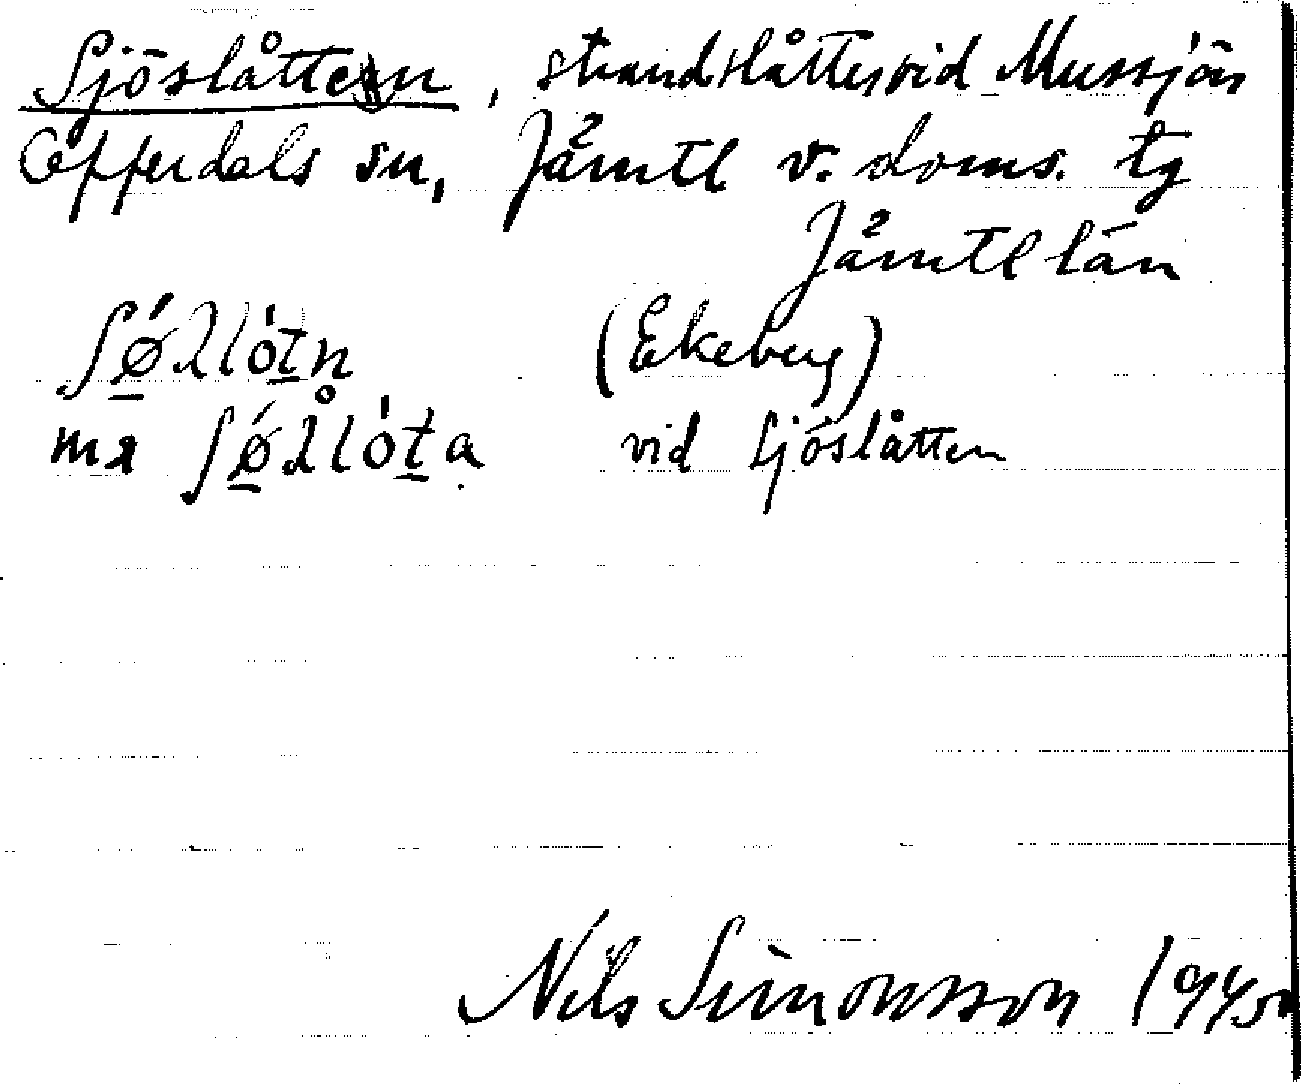 Sjöslåtten, strandslåtter vid Mussjön
Offerdals sn, Jämtl v. doms. tg
Jämtl län
(Ekeberg)
vid Sjöslåtten
Nils Simonsson 1945